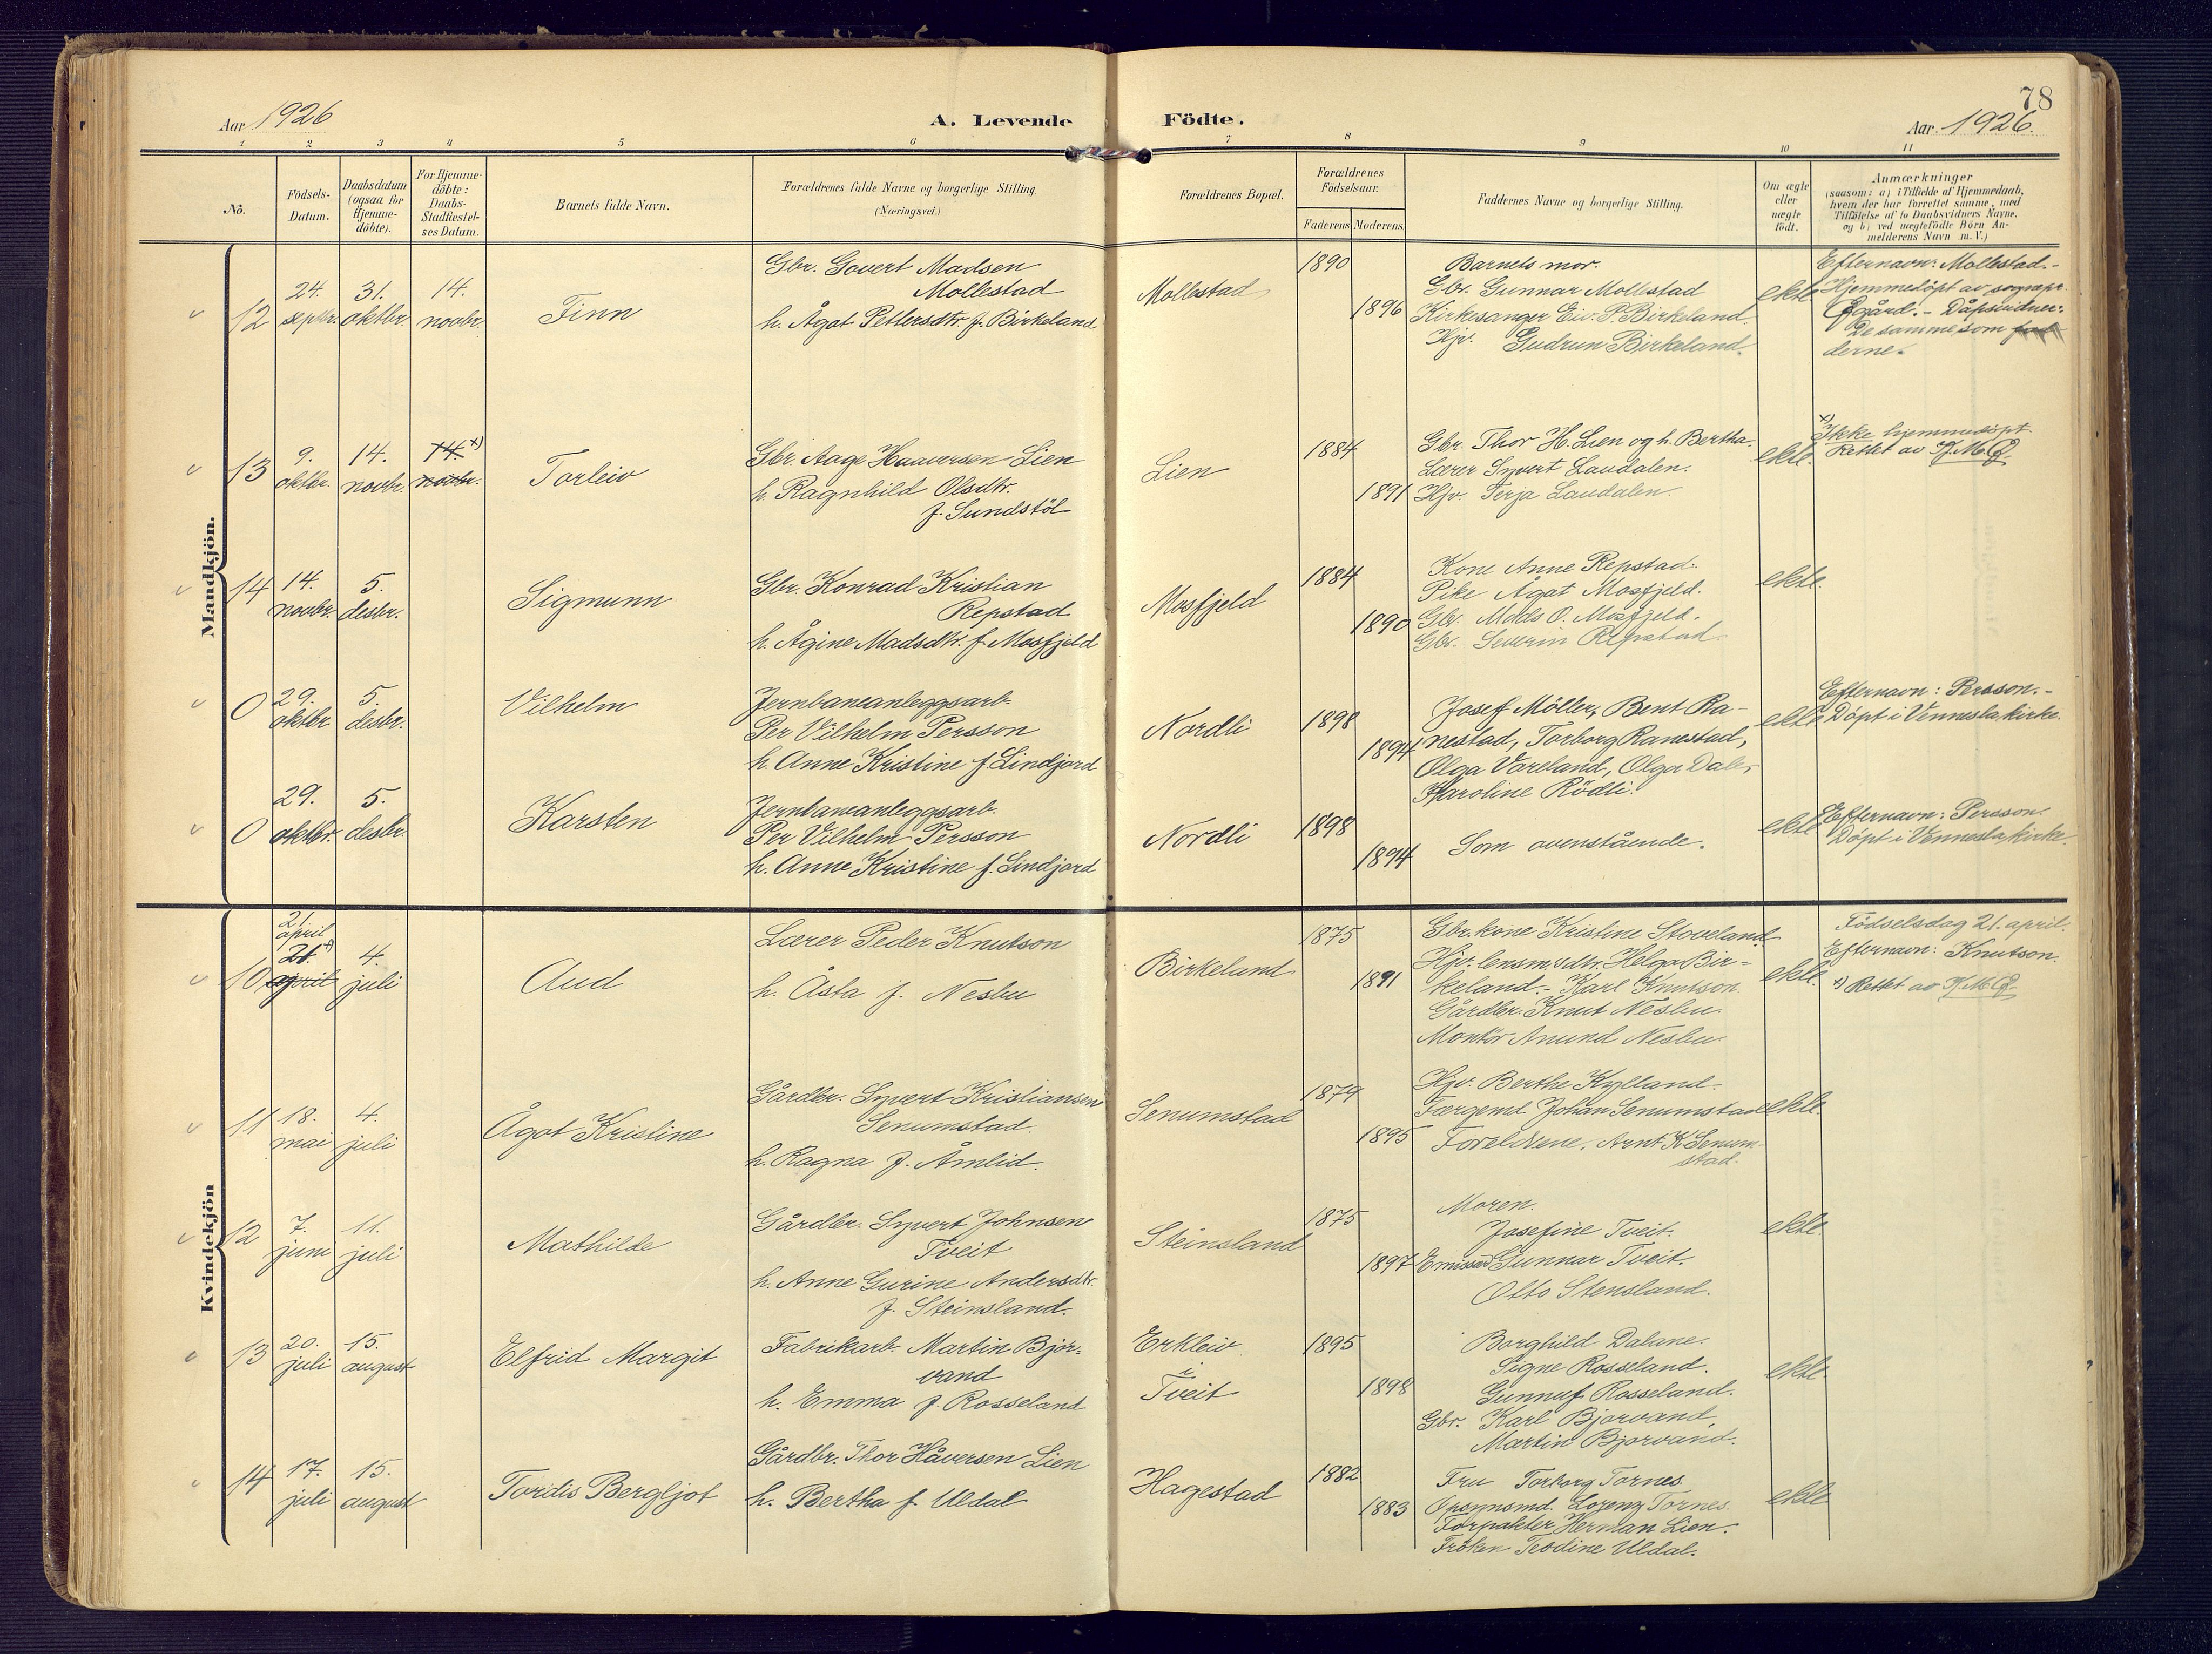 78
Aar 1926
A. Levende Födte.
Aar. 1926.
1 2 3 4 5 6 7 8 9 10 11
No.
Födsels-
Datum.
Daabsdatum
(ogsaa for
Hjemme-
döbte).
For Hjemme-
döbte:
Daabs-
Stadfæstel-
ses Datum.
Barnets fulde Navn.
Forældrenes fulde Navne og borgerlige Stilling.
(Næringsvei.)
Forældrenes Bopæl.
Forældrenes
Födselsaar.
Faderens Moderens.
Faddernes Navne og borgerlige Stilling.
Om ægte
eller
uægte
födt.
Anmærkninger
(saasom: a) i Tilfælde af Hjemmedaab,
hvem der har forrettet samme, med
Tilföielse af to Daabsvidners Navne.
og b) ved uægtefödte Börn An-
melderens Navn m.V.)
Mandkjön.
12
24.
septbr.
31.
oktbr.
14.
novbr.
Finn
Gbr. Govert Madsen
Mollestad
h. Ågot Pettersdtr. f. Birkeland
Mollestad
1890
1896
Barnets mor.
Gbr. Gunnar Mollestad
Kirkesanger Eiv. P. Birkeland.
Hjv. Gudrun Birkeland.
ekte
Efternavn: Mollestad.-
Hjemmedöpt av sognepr.
- Dåpsvidner:
De samme som fad
derne.
13
9.
oktbr.
14.
novbr.
14. x)
novbr.
Torleiv
Gbr. Aage Haaversen Lien
h. Ragnhild Olsdtr.
f. Sundstöl
Lien
1884
1891
Gbr. Thor H. Lien og h. Bertha.
Lærer Syvert Laudalen.
Hjv. Terja Laudalen.
ekte.
x)
Ikke hjemmedöpt.
Rettet av
14
14.
novbr.
5.
desbr.
Sigmunn
Gbr. Konrad Kristian
Repstad
h. Ågine Madsdtr. f. Mosfjeld
Mosfjeld
1884
1890
Kone Anne Repstad.
Pike Ågot Mosfjeld.
Gbr. Mads O. Mosfjeld.
Gbr. Severin Repstad.
ekte.
0
29.
oktbr
5.
desbr.
Vilhelm
Jernbaneanleggsarb.
Per Vilhelm Persson
h. Anne Kristine f. Lindjord
Nordli
1898
1894
Josef Möller, Bent Ra-
nestad, Torborg Ranestad,
Olga Vareland, Olga Dale,
Karoline Rödli.
ekte
Efternavn: Persson.-
Döpt i Vennesla kirke.
0
29.
oktbr.
5.
desbr.
Karsten
Jernbaneanleggsarb.
Per Vilhelm Persson
h. Anne Kristine f. Lindjord
Nordli
1898
1894
Som ovenstående.
ekte
Efternavn: Persson.
Döpt i Vennesla kirke.
Kvindekjön
10
21.
april
21. x)
april
4.
juli
Aud
Lærer Peder Knutson
h. Åsta f. Nesbu
Birkeland
1875
1891
Gbr.kone Kristine Stoveland
Hjv. lensm.sdtr. Helga Bir-
keland.- Karl Knutson
Gårdbr. Knut Nesbu.
Montör Anund Nesbu.
ekte.
Födselsdag 21. april.
Efternavn: Knutson.
x) Rettet av
11
18.
mai
4.
juli
Ågot Kristine
Gårdbr. Syvert Kristiansen
Senumstad.
h. Ragna f. Åmlid.
Senumstad
1879
1895
Hjv. Berthe Kylland.
Færgemd. Johan Senumstad
Foreldrene. Arnt K. Senum-
stad.
ekte.
12
7.
juni
11.
juli
Mathilde
Gårdbr. Syvert Johnsen
Tveit
h. Anne Gurine Andersdtr.
f. Steinsland.
Steinsland
1875
1897
Moren.
Josefine Tveit.
Emissær Gunnar Tveit.
Otto Stensland.
ekte.
13
20.
juli
15.
august
Elfrid Margit
Fabrikarb. Martin Bjor-
vand
h. Emma f. Rosseland
Erkleiv
i
Tveit
1895
1898
Borghild Dalane.
Signe Rosseland.
Gunnuf Rosseland.
Gbr. Karl Bjorvand.
Martin Bjorvand.
ekte.
14
17.
juli
15.
august
Tordis Bergljot
Gårdbr. Thor Håversen Lien
h. Bertha f. Uldal
Hagestad
1882
1883
Fru Torborg Tornes
Opsynsmd. Lorenz Tornes.
Forpakter Herman Lien.
Fröken Teodine Uldal.
ekte